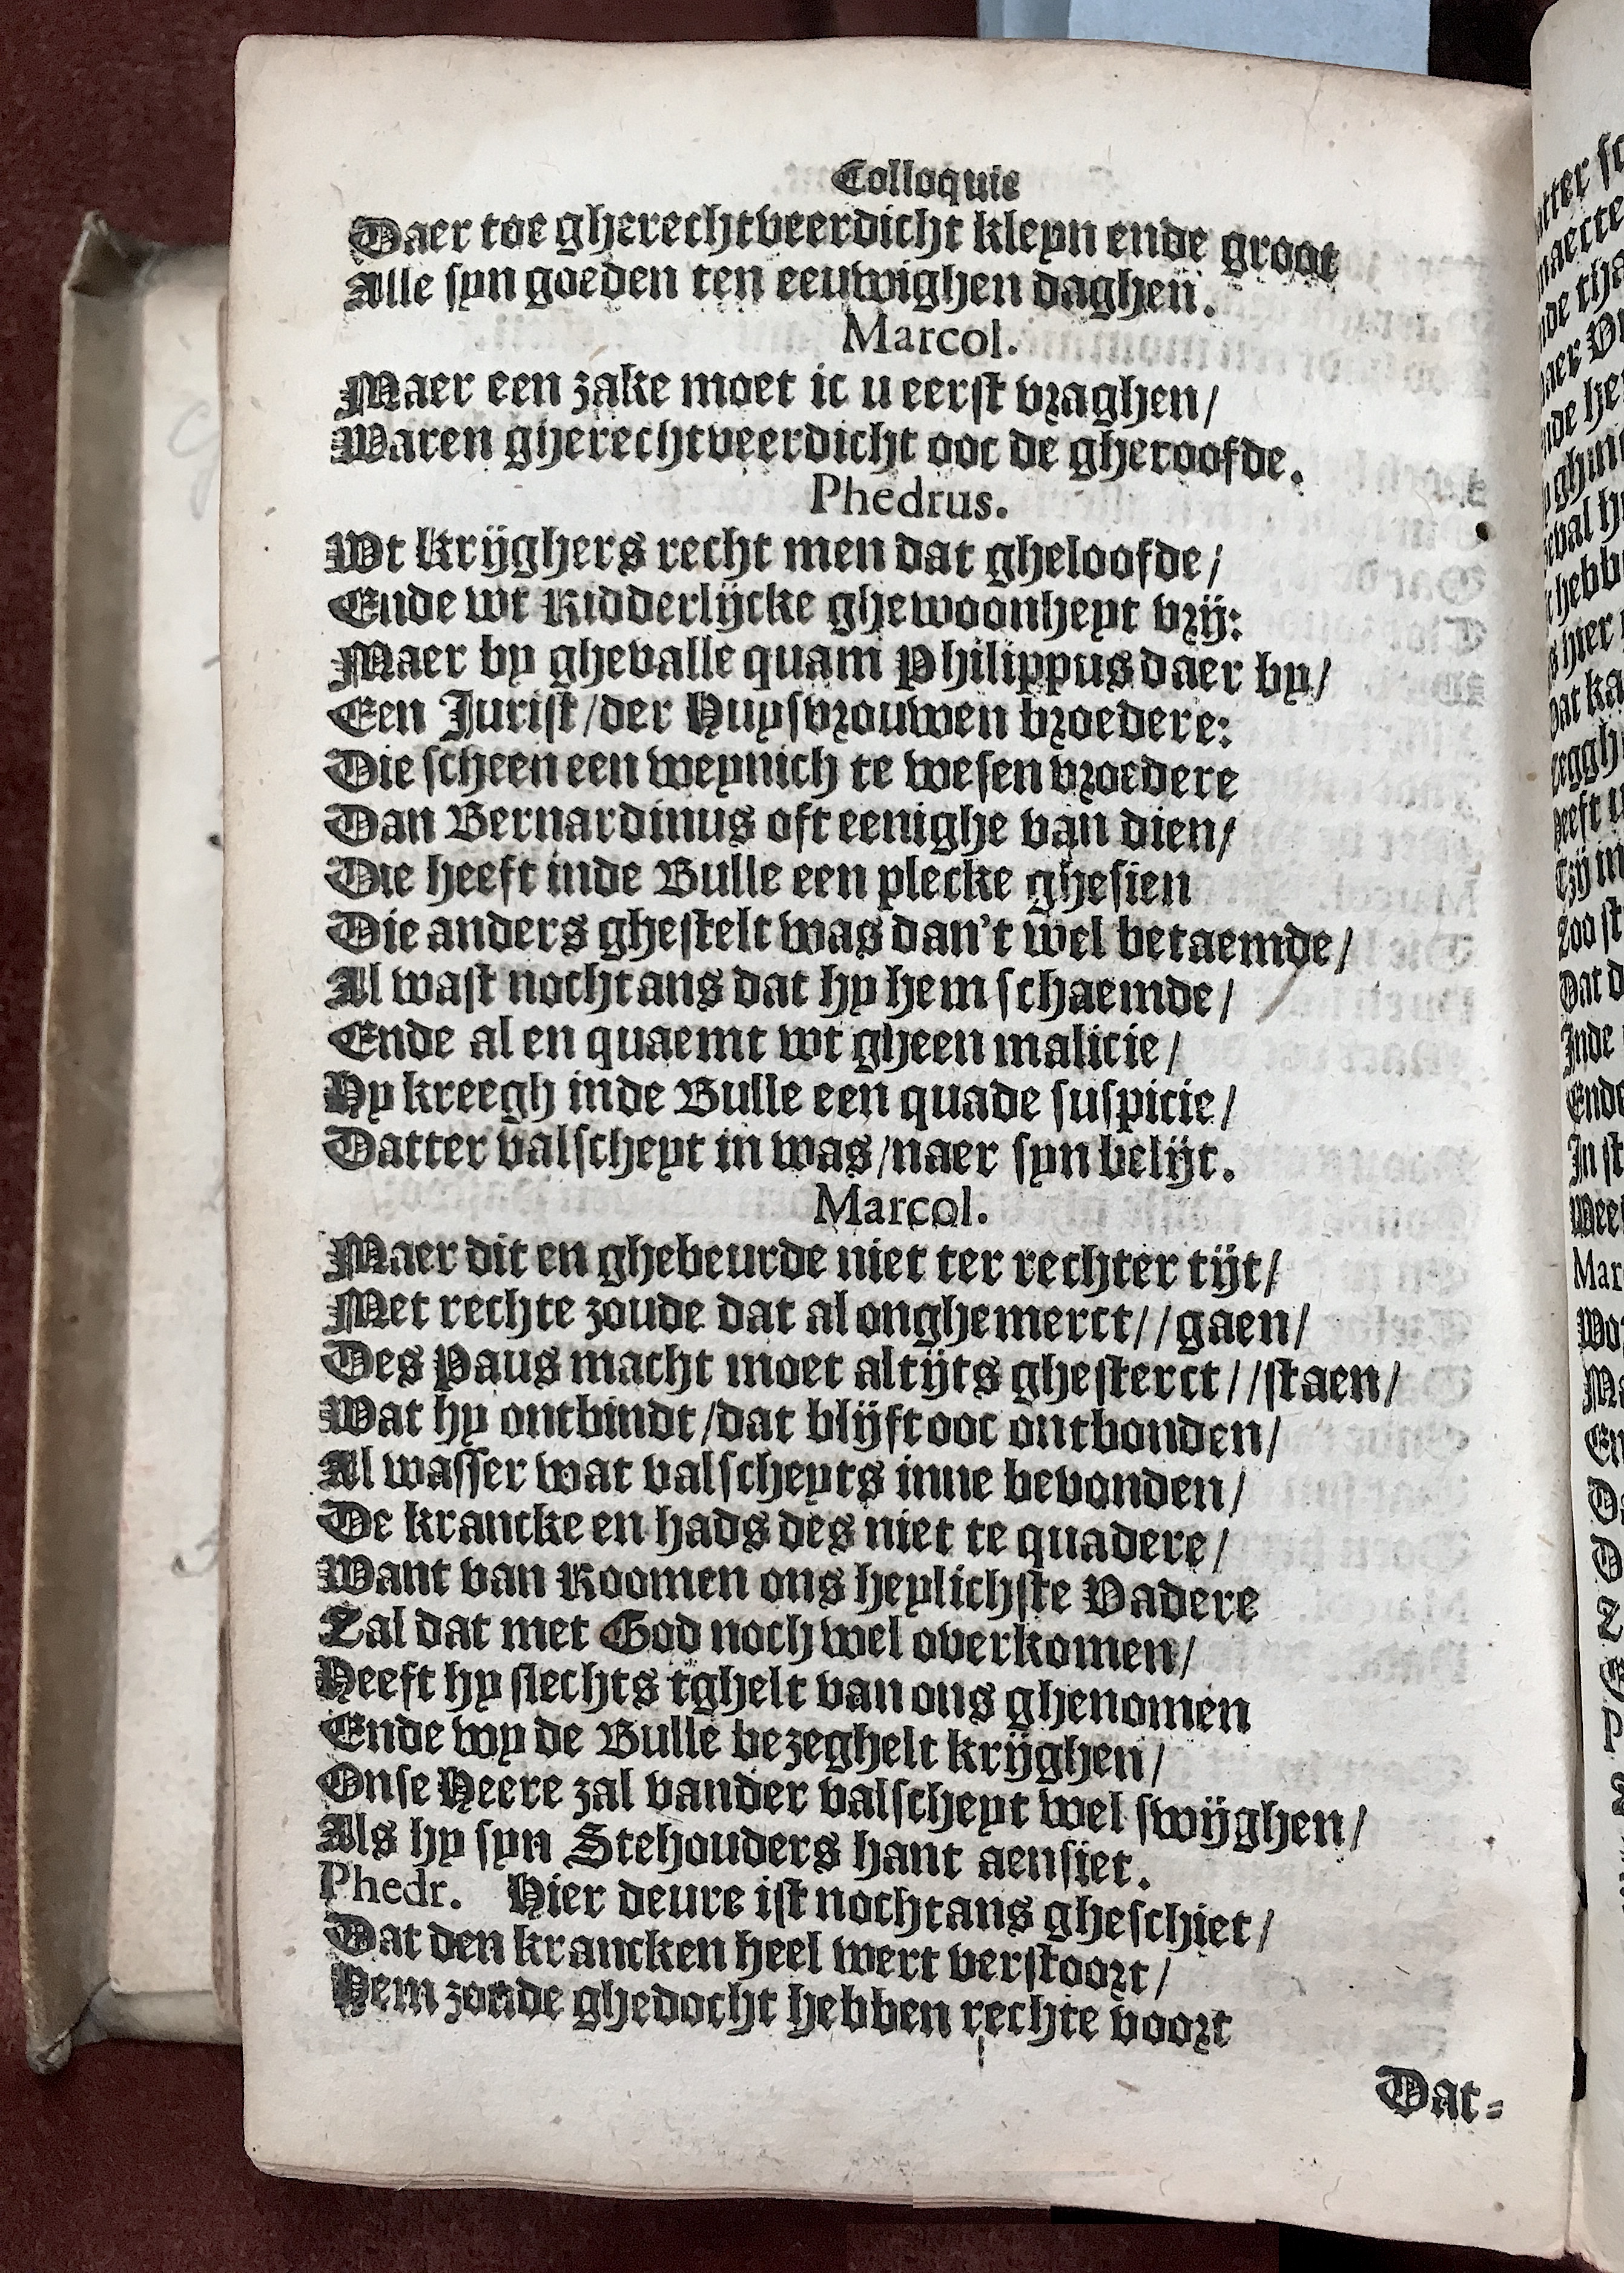 Colloquie
Daer toe gherechtveerdicht kleyn ende groot
Alle syn goeden ten eeuwighen daghen.
Marcol.
Maer een zake moet ic u eerst vraghen/
Waren gherechtveerdicht ooc de gheroofde.
Phedrus.
Wt krijghers recht men dat gheloofde/
Ende wt Ridderlijcke ghewoonheyt vrij:
Maer by ghevalle quam Philippus daer by/
Een Jurist/der Huysvrouwen broedere:
Die scheen een weynich te wesen vroedere
Dan Bernardinus oft eenighe van dien/
Die heeft inde Bulle een plecke ghesien
Die anders ghestelt was dan't wel betaemde/
Al wast nochtans dat hy hem schaemde/
Ende al en quaemt wt gheen malicie/
Hy kreegh inde Bulle een quade suspicie/
Datter valscheyt in was/naer syn belijt.
Marcol.
Maer dit en ghebeurde niet ter rechter tijt/
Met rechte zoude dat al onghemerct//gaen/
Des Paus macht moet altijts ghesterct//staen/
Wat hy ontbindt/dat blijft ooc ontbonden/
Al wasser wat valscheyts inne bevonden/
De krancke en hads des niet te quadere/
Want van Roomen ons heylichste Vadere
Zal dat met God noch wel overkomen/
Heeft hy slechts tghelt van ons ghenomen
Ende wy de Bulle bezeghelt krijghen/
Onse Heere zal vander valscheyt wel swijghen/
Als hy syn Stehouders hant aensiet.
Phedr. Hier deure ist nochtans gheschiet/
Dat den krancken heel wert verstoort/
Hem zoude ghedocht hebben rechte voort
Dat=